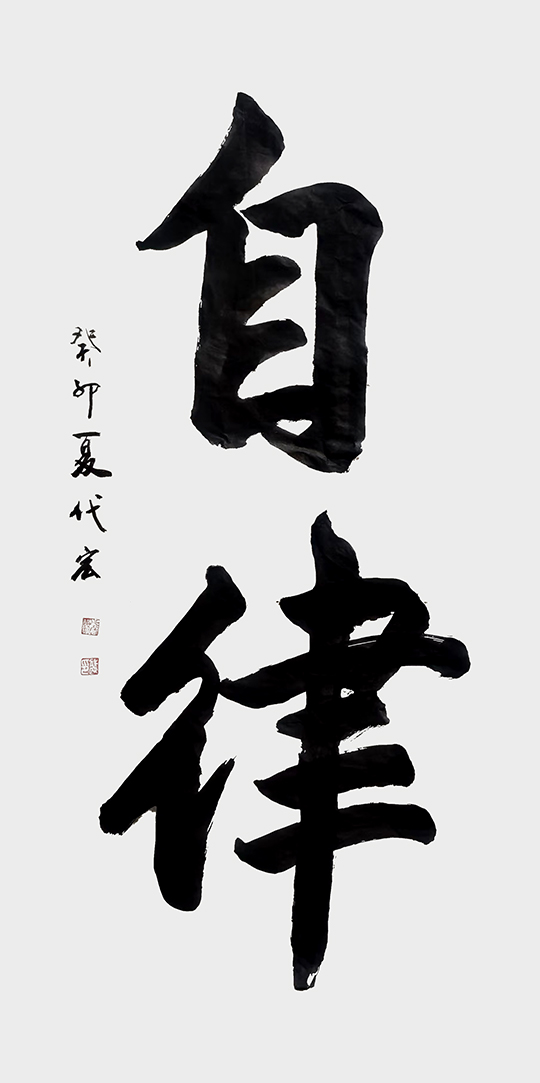 自律
癸卯夏代宏